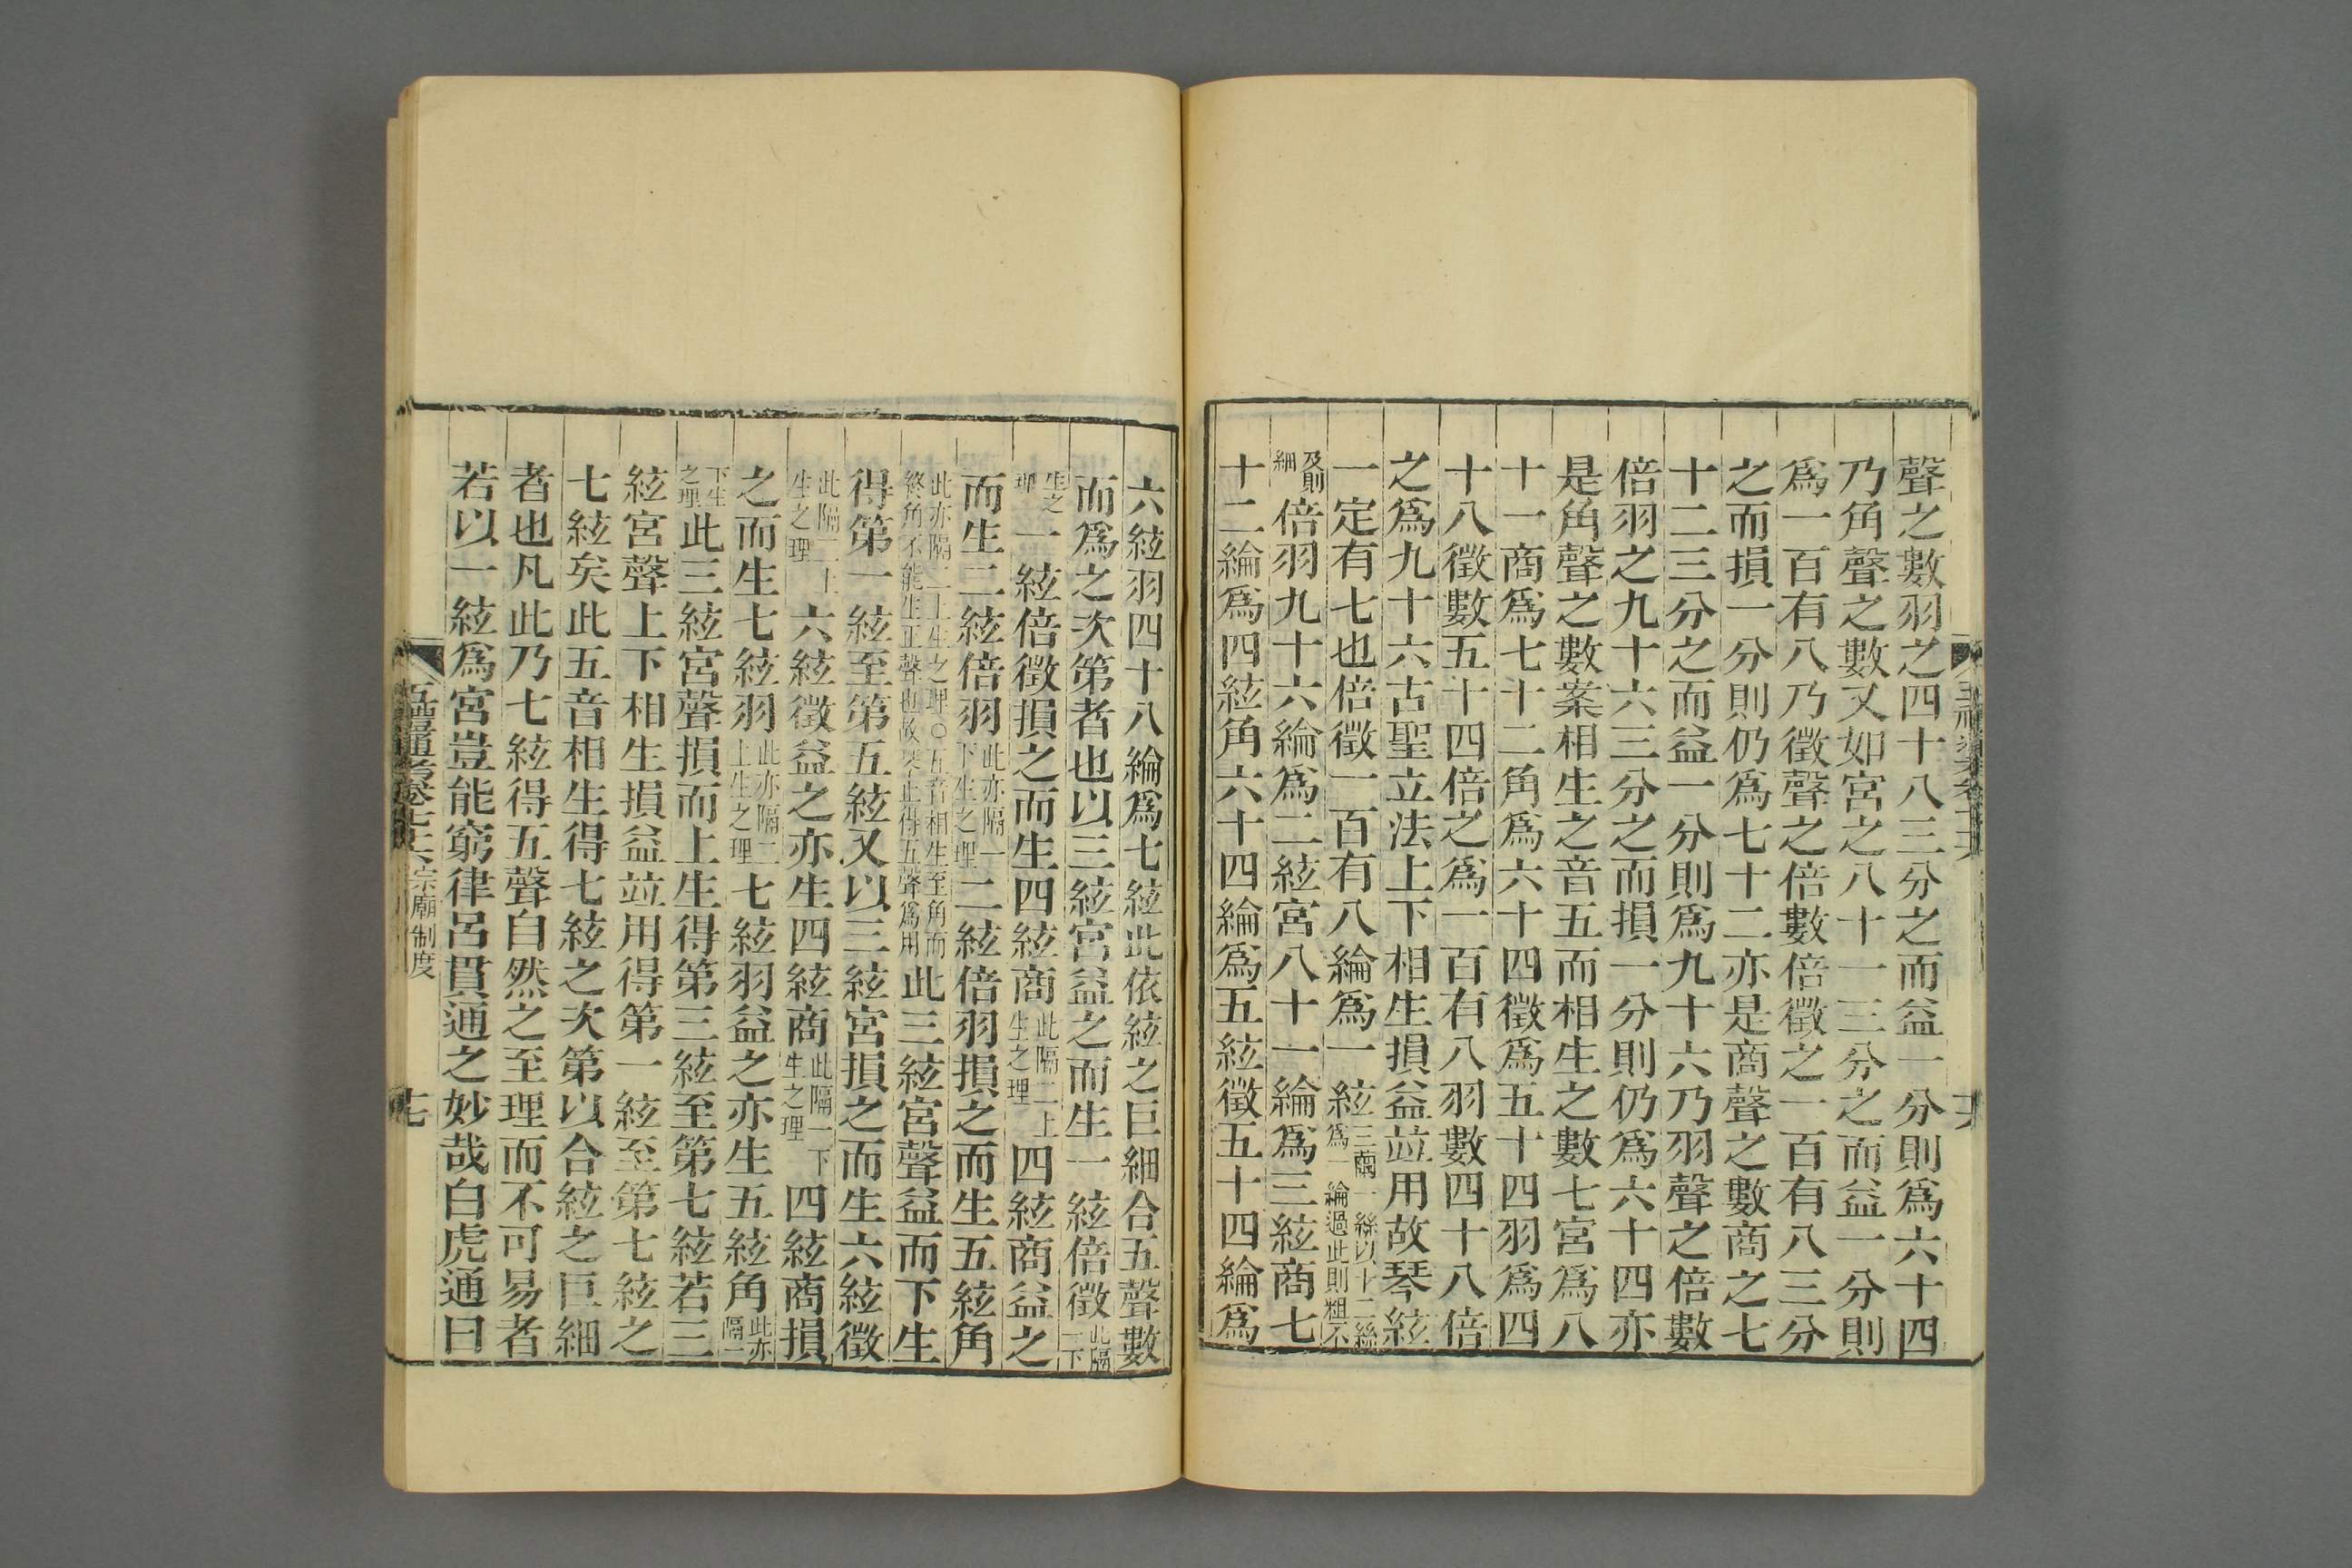 聲之數羽之四十八三分之而益一分則爲六十四
乃角聲之數又如宮之八十一三分之而益一分則
爲一百有八乃徵聲之倍數倍徵之一百有八三分
之而損一分則仍爲七十二亦是商聲之數商之七
十二三分之而益一分則爲九十六乃羽聲之倍數
倍羽之九十六三分之而損一分則仍爲六十四亦
是角聲之數案相生之音五而相生之數七宮爲八
十一商爲七十二角爲六十四徵爲五十四羽爲四
十八徵數五十四倍之爲一百有八羽數四十八倍
之爲九十六古聖立法上下相生損益竝用故琴絃
一定有七也倍徵一百有八綸爲一絃三繭一絲以十二絲爲一綸過此則粗不
及則細倍羽九十六綸爲二絃宮八十一綸爲三絃商七
十二綸爲四絃角六十四綸爲五絃徵五十四綸爲
六絃羽四十八綸爲七絃此依絃之巨細合五聲數
而爲之次第者也以三絃宮益之而生一絃倍徵此隔一下
生之理一絃倍徵損之而生四絃商此隔二上生之理四絃商益之
而生二絃倍羽此亦隔一下生之理二絃倍羽損之而生五絃角
此亦隔二上生之理〇五音相生至角而終角不能生正聲也故琴止得五聲爲用此三絃宮聲益而下生
得第一絃至第五絃又以三絃宮損之而生六絃徵
此隔二上生之理六絃徵益之亦生四絃商此隔一下生之理四絃商損
之而生七絃羽此亦隔二上生之理七絃羽益之亦生五絃角此亦隔一
下生之理此三絃宮聲損而上生得第三絃至第七絃若三
絃宮聲上下相生損益竝用得第一絃至第七絃之
七絃矣此五音相生得七絃之次第以合絃之巨細
者也凡此乃七絃得五聲自然之至理而不可易者
若以一絃爲宮豈能窮律呂貫通之妙哉白虎通曰
五禮通考卷七十六宗廟制度
十七